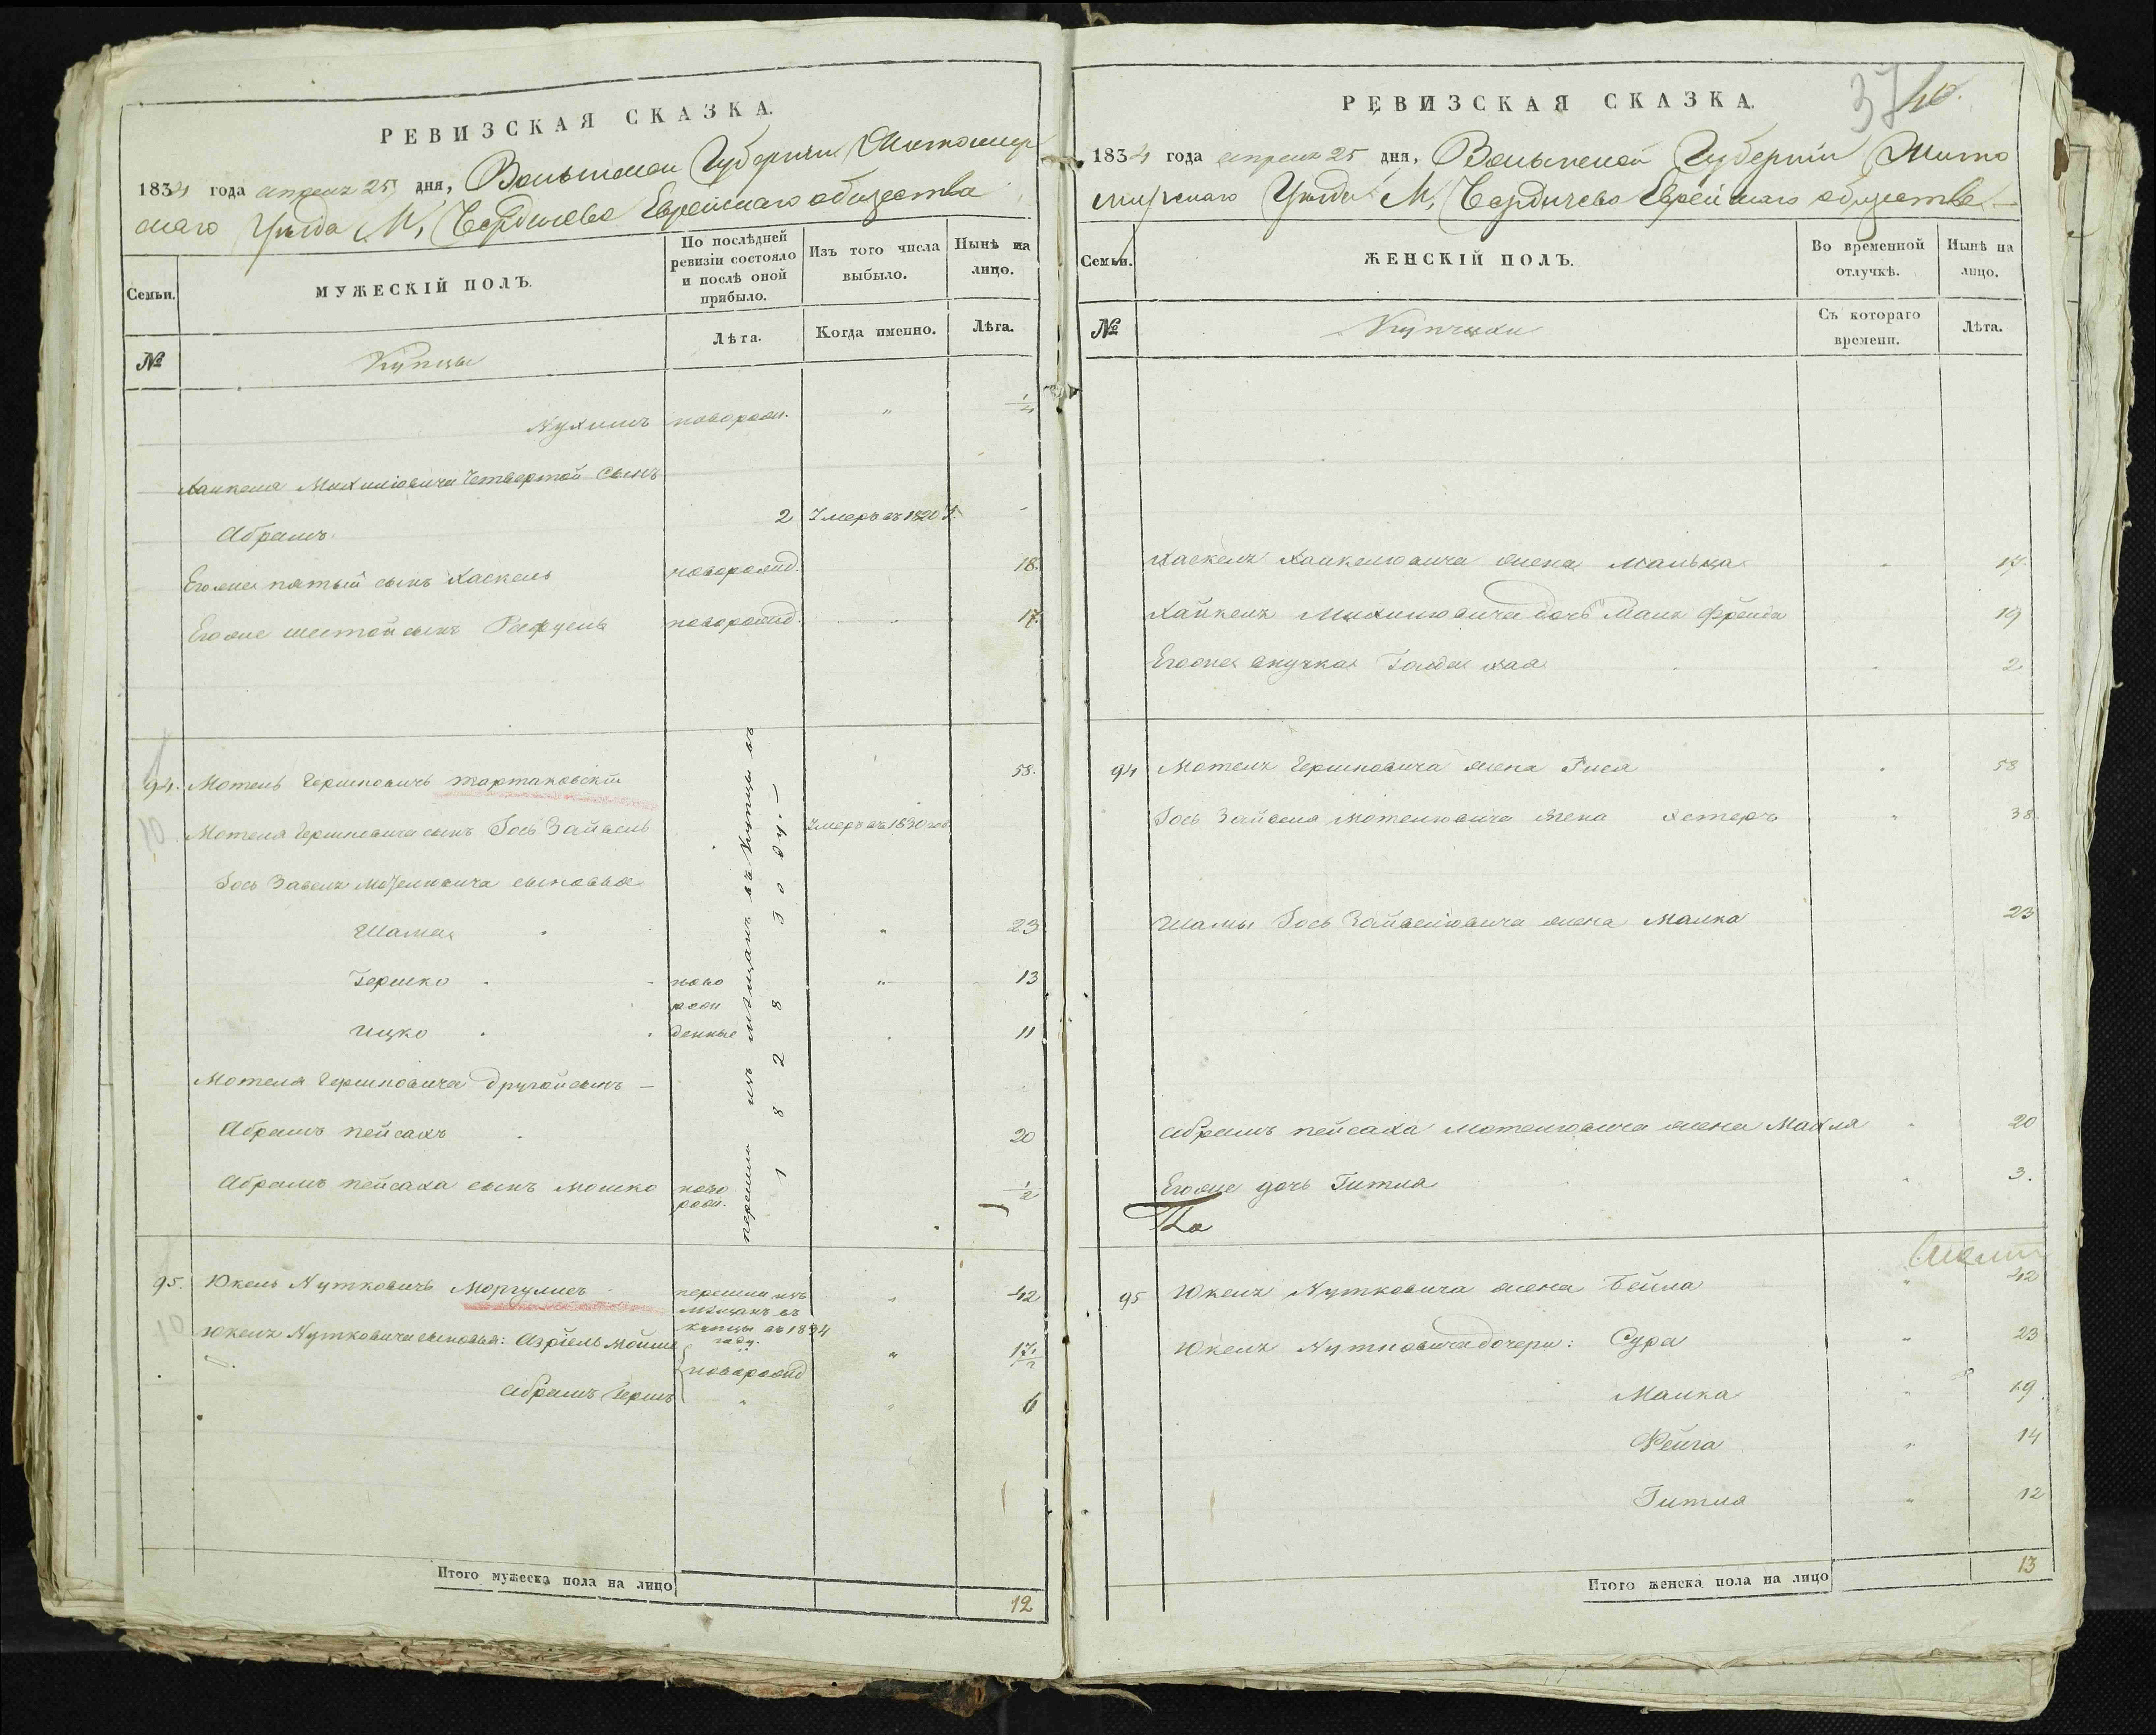 РЕВИЗСКАЯ СКАЗКА.
1834 года апреля 25 дня, Волынской Губернии Житомир
скаго Уезда М, Бердичева Еврейскаго общества
Семьи.
МУЖЕСКІЙ ПОЛЪ.
По послѣдней ревизіи состояло и послѣ оной прибыло.
Изъ того числа выбыло.
Нынѣ на лицо.
№
Купцы
Лѣта.
Когда именно.
Лѣта.
Нухимъ новорож. " 1/4
Хаикеля Михилювича Четвертой Сынъ
Абрамъ 2 Умеръ въ 1820 г. -
Егоже пятый сынъ Хаскель новорожд. 18.
Егоже шестой сынъ Рафуель новорожд. " 17.
94. Мотель Гершковичь Тартаковскій 58.
10. Мотеля Гершковича сынъ Іось Зайвель Умеръ въ 1830 год
Іось Завеля Мотелювича сыновья
Шама " 23
Гершко ново " 13
рож
Ицко денные 11
Мотеля Гершковича другой сынъ —
Абрамъ Пейсахъ 20
Абрамъ Пейсаха сынъ Мошко ново 1/2
рож.
перешли изъ мѣщанъ въ Купцы въ
1828 Году. —
95. Юкель Нутковичь Моргулисъ перешли изъ " 42
мѣщанъ въ
купцы въ 1834
году.
10 Юкеля Нутковича сыновья: Азріель Мойше новорожд " 17 1/2
Абрамъ Гершъ " " 6
Итого мужеска пола на лицо
12
РЕВИЗСКАЯ СКАЗКА.
37
40.
1834 года апреля 25 дня, Волынской Губерніи Жито
мирскаго Уезда М, Бердичева Еврейскаго общества
Семьи.
ЖЕНСКІЙ ПОЛЪ.
Во временной отлучкѣ.
Нынѣ на лицо.
№
Купчихи
Съ котораго времени.
Лѣта.
Хаскеля Хаикелювича жена Мальца 17.
Хайкеля Михилювича дочь Маля Фрейда 19
Егоже внучка Голда Хая 2
94 Мотеля Гершковича жена Рися 58
Іось Зайвеля Мотелювича жена Хетеръ " 38
Шамы Іось Зайвелювича жена Малка 23
Абрамъ Пейсаха Мотелювича жена Махля 20
Егоже дочь Гитля 3.
95 Юкеля Нутковича жена Бейла " 42
Юкеля Нутковича дочери: Сура " 23
Малка 19.
Фейга " 14
Гитля " 12
Итого женска пола на лицо
13